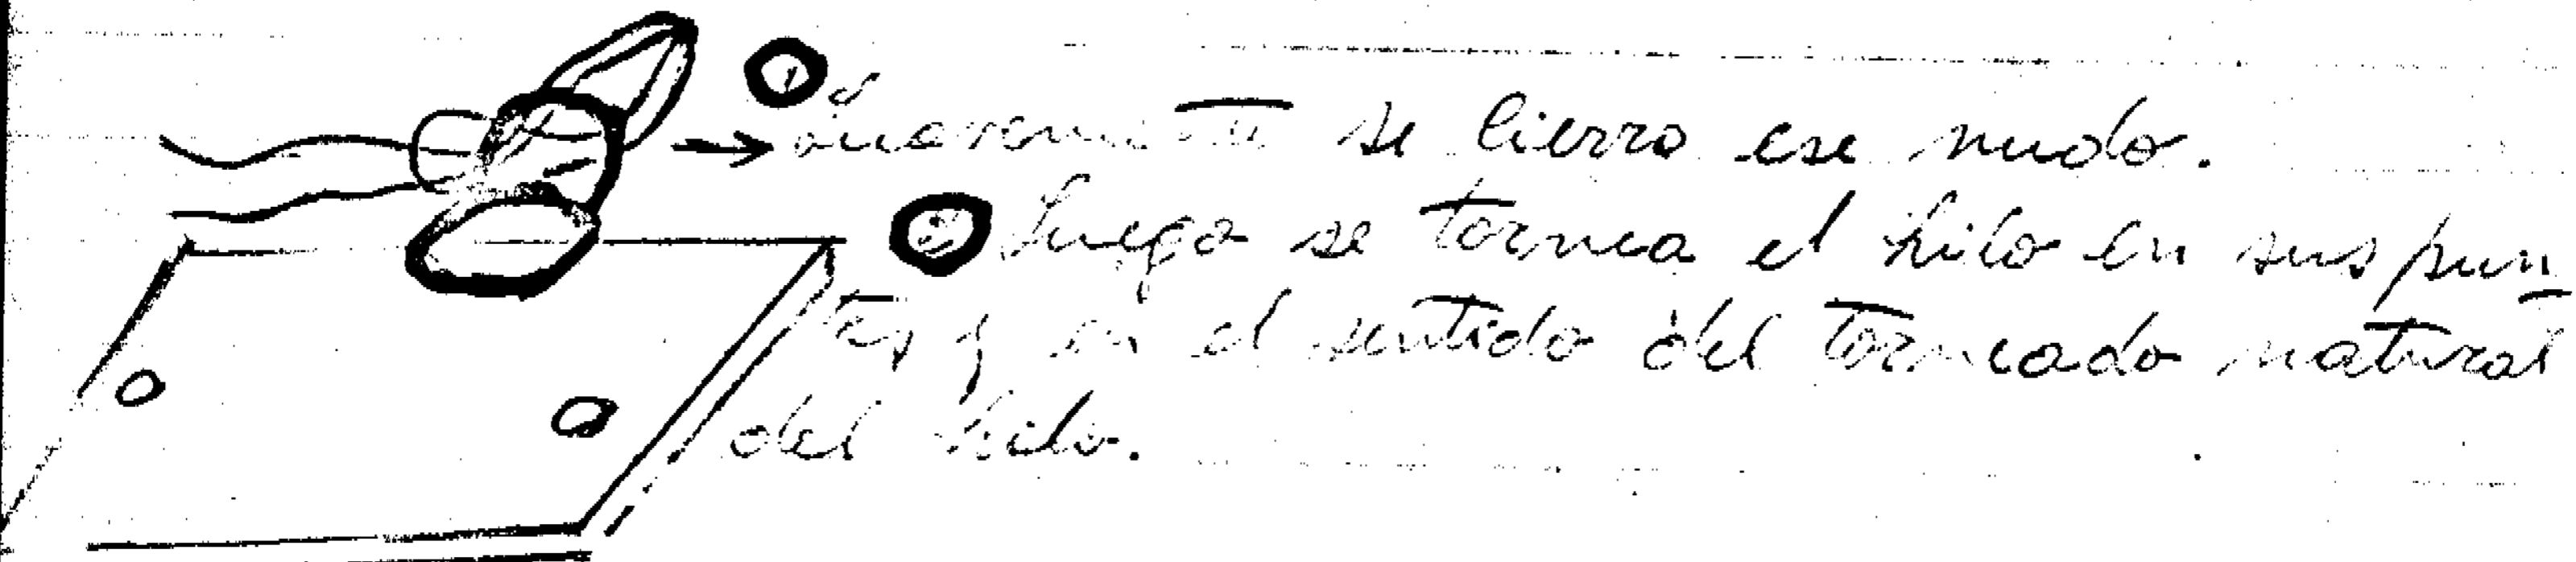 ① Suavemente se cierra ese nudo.
② Luego se tornea el hilo en sus pun
tas y en el sentido del torneado natural
del hilo.